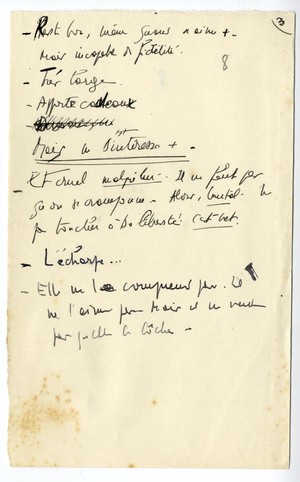 3
- Reste bon, même quand n'aime +.
Mais incapable de fidélité.
8
- Très large.
- Apporte cadeaux
Mais ne s'intéresse +.
Et cruel malgré lui. Il ne peut pas
qu'on se cramponne. Alors, brutal. Ne
pas toucher à sa liberté.
- L'écharpe...
- Elle ne le comprend pas.
ne l'aime pas mais il ne veut
pas qu'elle le lâche -